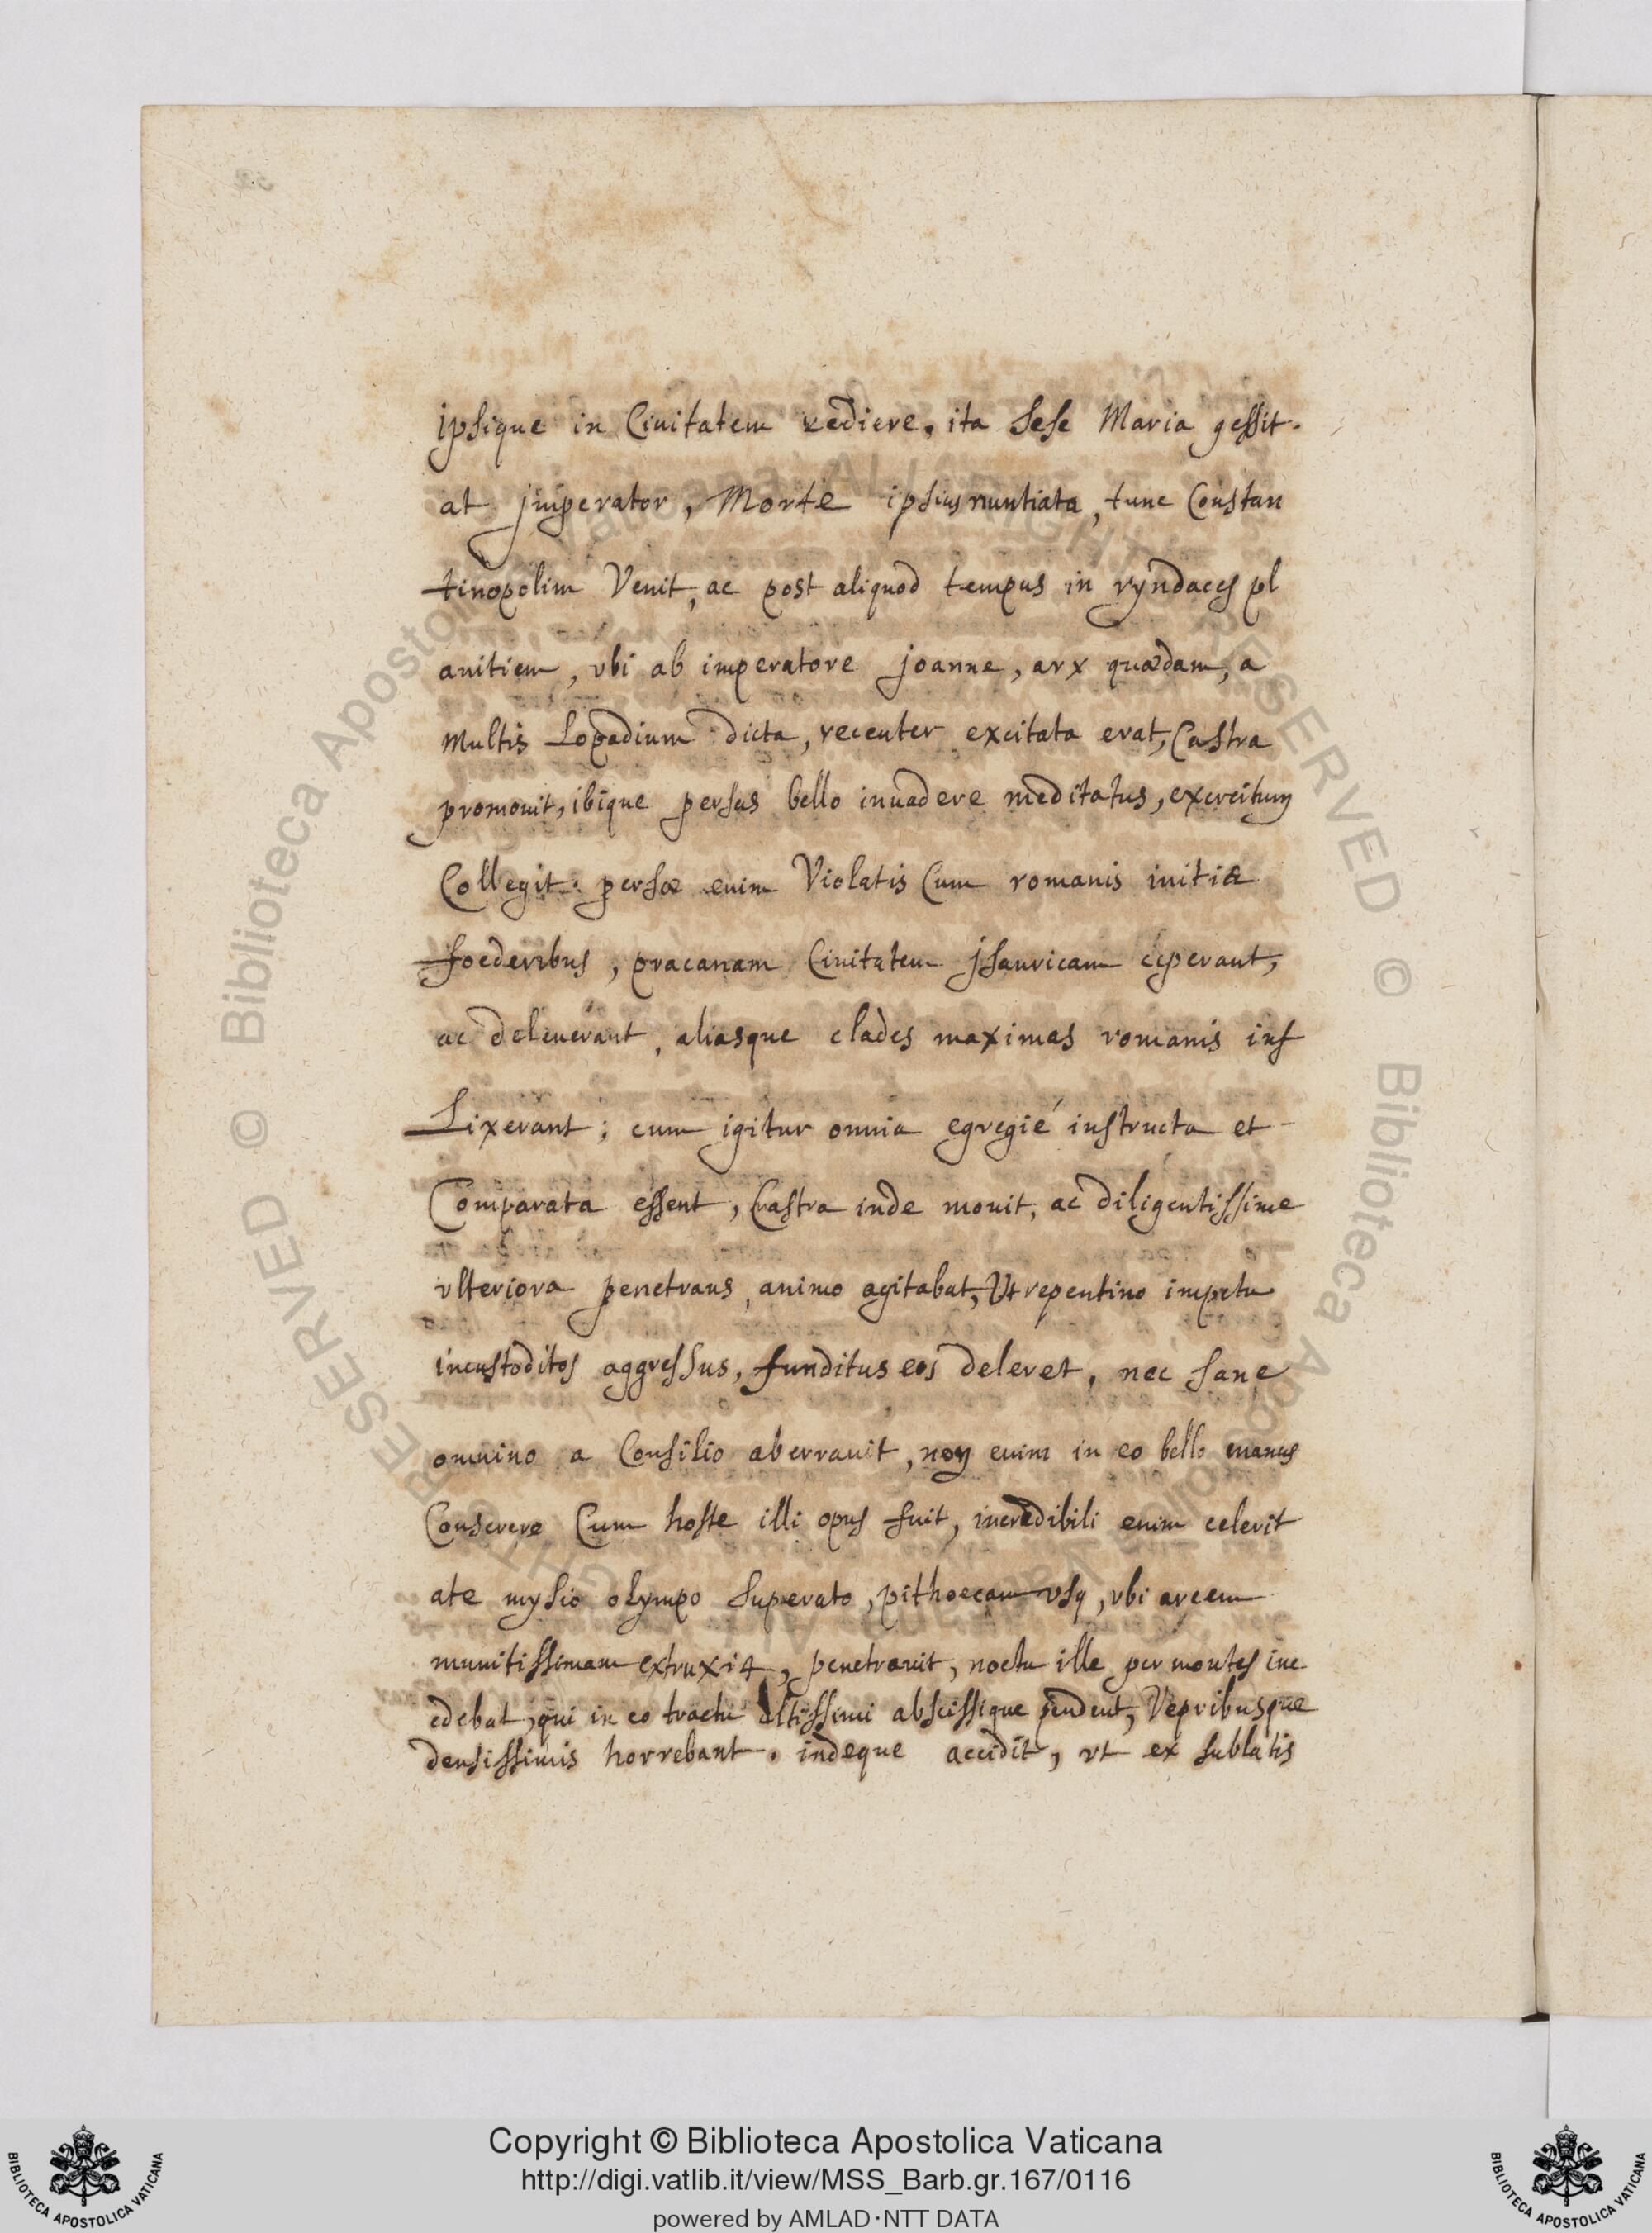 ipsique in Ciuitatem rediere. ita sese Maria gessit.
at jmperator, Morte ipsius nuntiata, tunc Constan
tinopolim Venit, ac post aliquod tempus in ryndaces pl
anitiem, vbi ab imperatore joanne, arx quædam, a
multis Lopadium dicta, recenter excitata erat, Castra
promouit, ibique persas bello inuadere meditatus, exercitum
Collegit: persæ enim Violatis Cum romanis initiæ
foederibus, pracanam Ciuitatem jsauricam ceperant,
ac deleuerant, aliasque clades maximas romanis inf
Lixerant; cum igitur omnia egregié instructa et
Comparata essent, Castra inde mouit, ac diligentissime
vlteriora penetrans, animo agitabat, Vt repentino impetu
incustoditos aggressus, funditus eos deleret, nec sane
omnino a Consilio aberrauit, non enim in eo bello manus
Conserere Cum hoste illi opus fuit, incredibili enim celerit
ate mysio olympo superato, pithoecam vsq, vbi arcem
munitissimam extruxit, penetrauit, noctu ille per montes inc
edebat, qui in eo tractu altissimi abscissique pendent, Vepribusque
densissimis horrebant. indeque accidit, vt ex sublatis
Copyright © Biblioteca Apostolica Vaticana
http://digi.vatlib.it/view/MSS_Barb.gr.167/0116
powered by AMLAD·NTT DATA